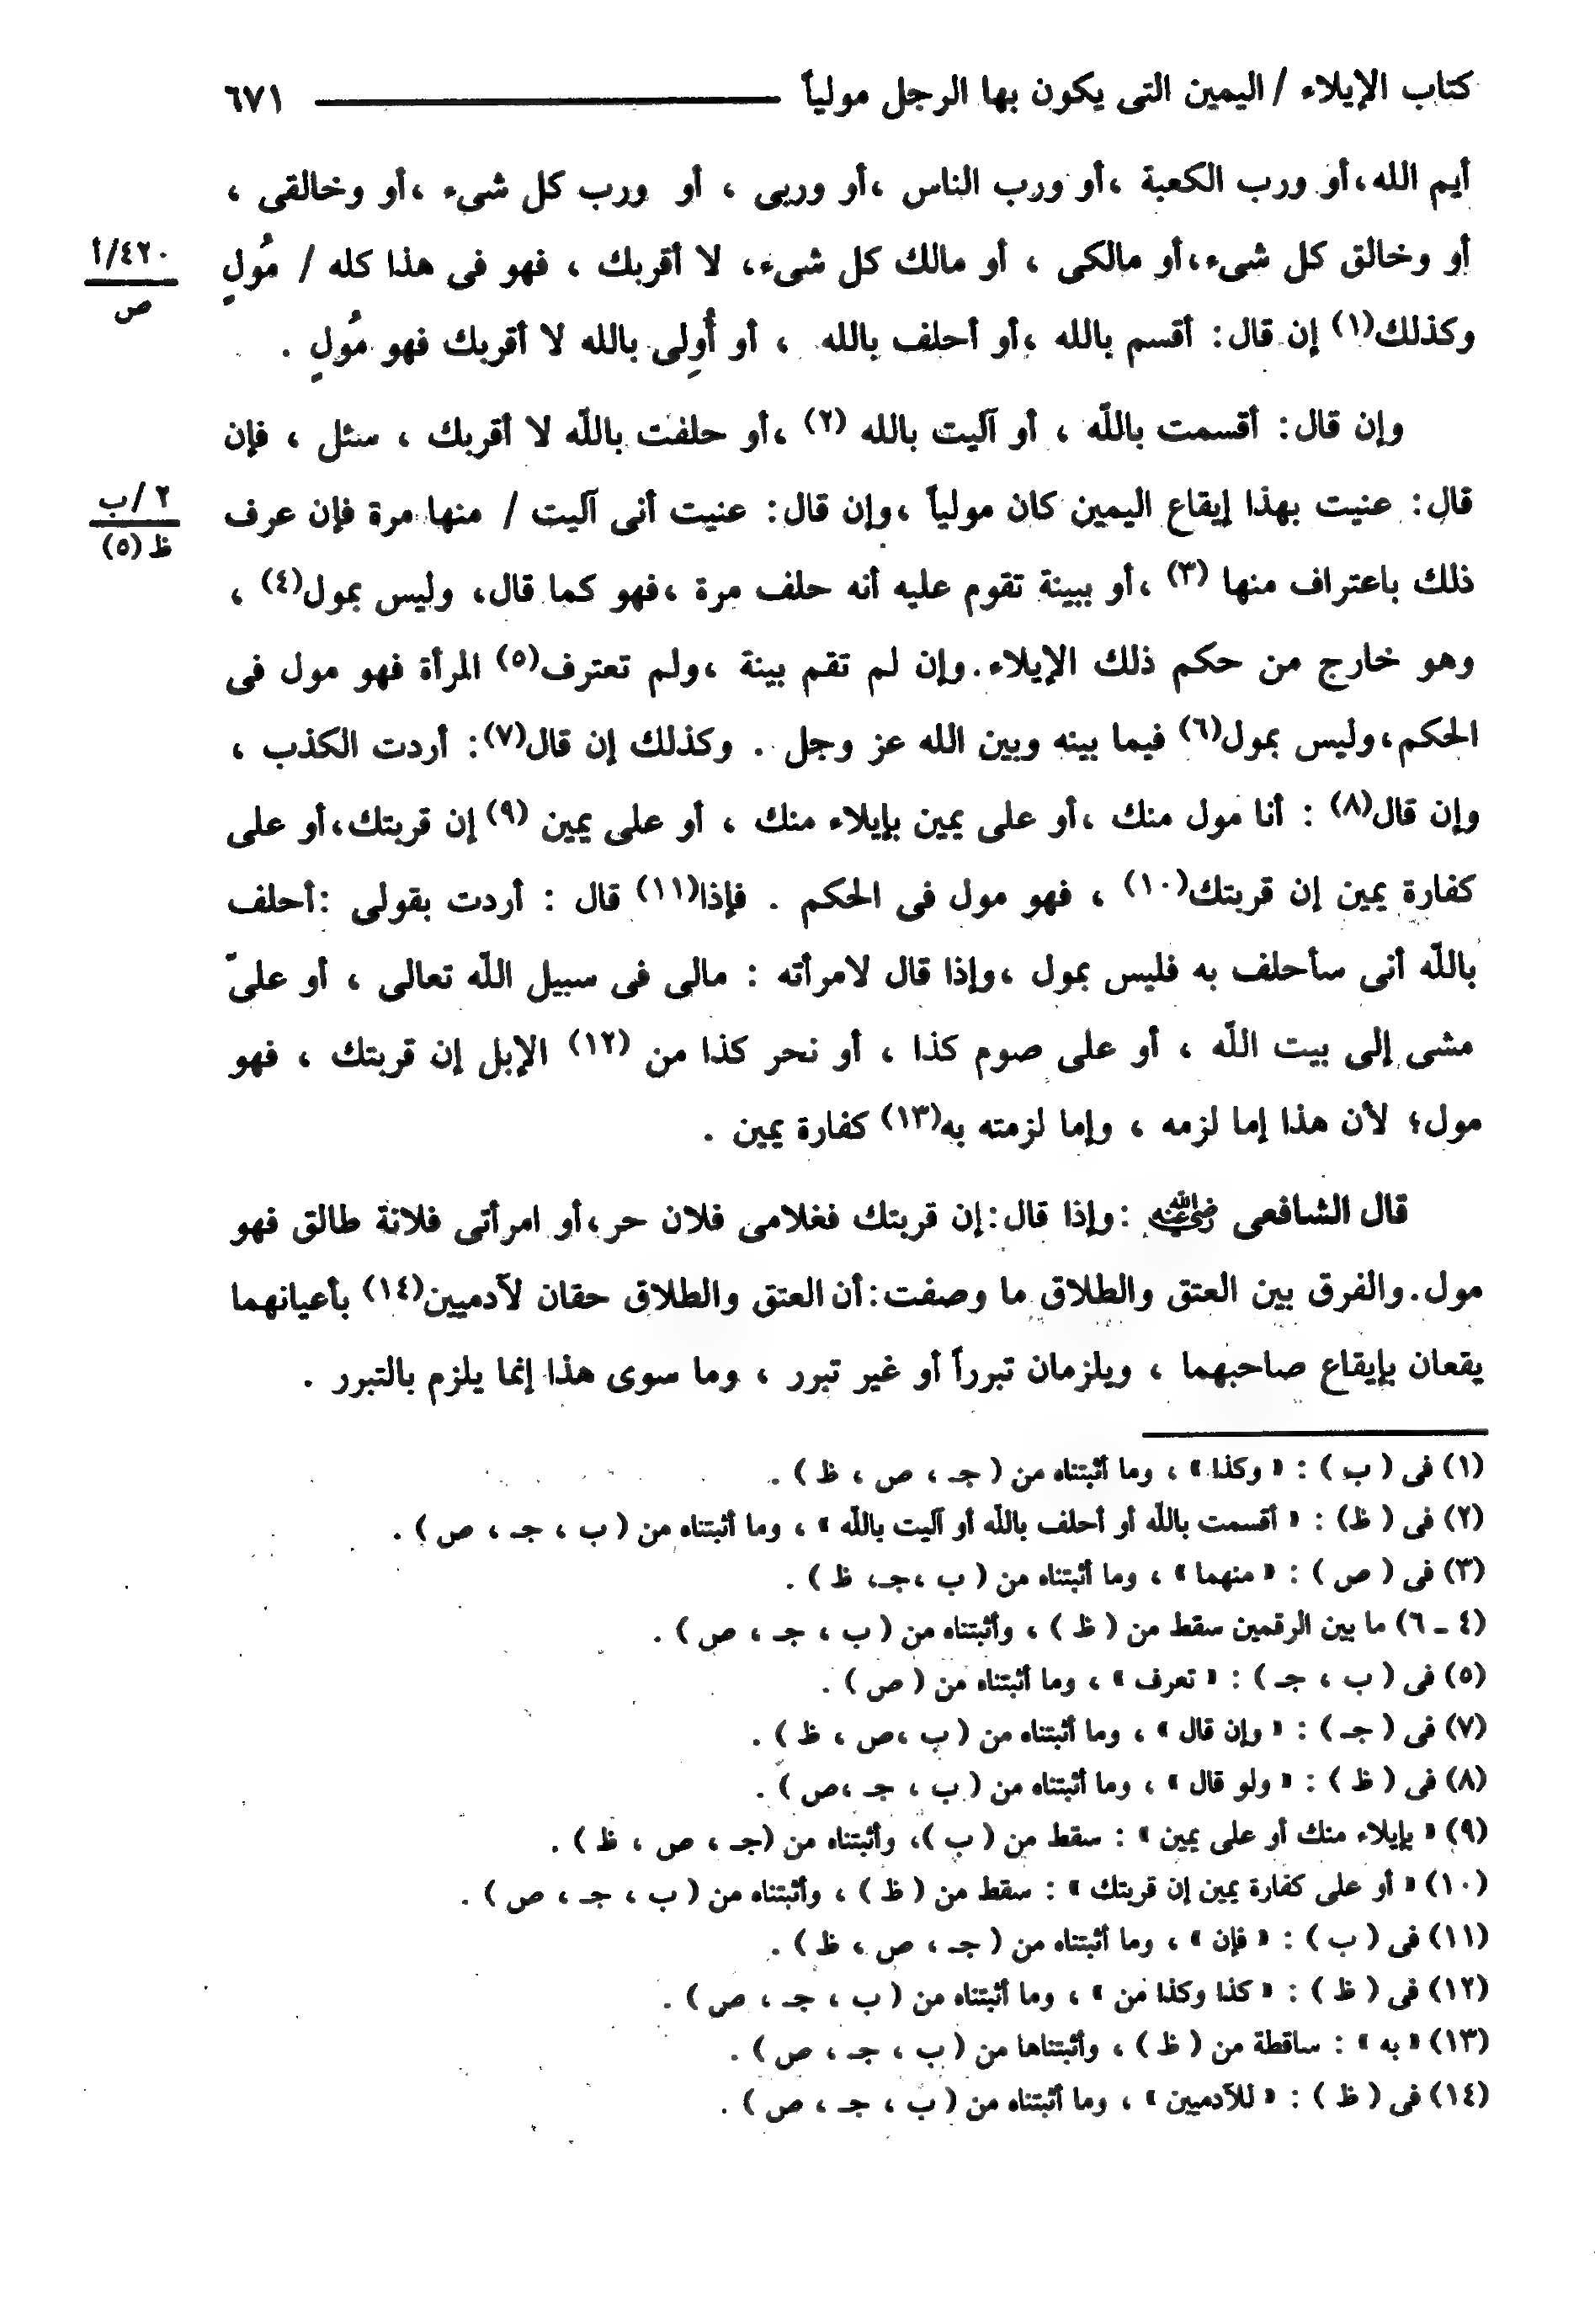 كتاب الإيلاء / اليمين التى يكون بها الرجل مولياً ٦٧١
أيم الله ،أو ورب الكعبة ،أو ورب الناس ،أو وربى ، أو ورب كل شىء ،أو وخالقى ،
أو وخالق كل شىء،أو مالكى ، أو مالك كل شىء، لا أقربك ، فهو فى هذا كله / مُولٍ
٤٢٠/أ
ص
وكذلك(١) إن قال: أقسم بالله ،أو أحلف بالله ، أو أُولِى بالله لا أقربك فهو مُولٍ .
وإن قال: أقسمت باللّه ، أو آليت بالله (٢) ،أو حلفت باللّه لا أقربك ، سئل ، فإن
قال: عنيت بهذا إيقاع اليمين كان مولياً ،وإن قال: عنيت أنى آليت / منها مرة فإن عرف
٢ /ب
ظ (٥)
ذلك باعتراف منها (٣) ،أو ببينة تقوم عليه أنه حلف مرة ،فهو كما قال، وليس بمول(٤) ،
وهو خارج من حكم ذلك الإيلاء.وإن لم تقم بينة ،ولم تعترف(٥) المرأة فهو مول فى
الحكم،وليس بمول(٦) فيما بينه وبين الله عز وجل . وكذلك إن قال(٧): أردت الكذب ،
وإن قال(٨) : أنا مول منك ،أو على يمين بإيلاء منك ، أو على يمين (٩) إن قربتك،أو على
كفارة يمين إن قربتك(١٠) ، فهو مول فى الحكم . فإذا(١١) قال : أردت بقولى :أحلف
باللّه أنى سأحلف به فليس بمول ،وإذا قال لامرأته : مالى فى سبيل اللّه تعالى ، أو علىّ
مشى إلى بيت اللّه ، أو على صوم كذا ، أو نحر كذا من (١٢) الإبل إن قربتك ، فهو
مول؛ لأن هذا إما لزمه ، وإما لزمته به(١٣) كفارة يمين .
قال الشافعى رضي الله عنه :وإذا قال:إن قربتك فغلامى فلان حر،أو امرأتى فلانة طالق فهو
مول.والفرق بين العتق والطلاق ما وصفت:أن العتق والطلاق حقان لآدميين(١٤) بأعيانهما
يقعان بإيقاع صاحبهما ، ويلزمان تبرراً أو غير تبرر ، وما سوى هذا إنما يلزم بالتبرر .
(١) فى ( ب ) : « وكذا » ، وما أثبتناه من ( جـ ، ص ، ظ ) .
(٢) فى ( ظ) : « أقسمت باللّه أو أحلف باللّه أو آليت باللّه » ، وما أثبتناه من ( ب ، جـ ، ص ) .
(٣) فى ( ص ) : « منهما » ، وما أثبتناه من ( ب ،جـ، ظ ) .
(٤ ـ ٦) ما بين الرقمين سقط من ( ظ ) ، وأثبتناه من ( ب ، جـ ، ص ) .
(٥) فى ( ب ، جـ ) : « تعرف » ، وما أثبتناه من ( ص ) .
(٧) فى ( جـ ) : « وإن قال » ، وما أثبتناه من ( ب ،ص ، ظ ) .
(٨) فى ( ظ ) : « ولو قال » ، وما أثبتناه من ( ب ، جـ ،ص ) .
(٩) « بإيلاء منك أو على يمين » : سقط من ( ب )، وأثبتناه من (جـ ، ص ، ظ ) .
(١٠) « أو على كفارة يمين إن قربتك » : سقط من ( ظ ) ، وأثبتناه من ( ب ، جـ ، ص ) .
(١١) فى ( ب ) : « فإن » ، وما أثبتناه من ( جـ ، ص ، ظ ) .
(١٢) فى ( ظ ) : « كذا وكذا من » ، وما أثبتناه من ( ب ، جـ ، ص ) .
(١٣) « به » : ساقطة من ( ظ ) ، وأثبتناها من ( ب ، جـ ، ص ) .
(١٤) فى ( ظ ) : « للآدميين » ، وما أثبتناه من ( ب ، جـ ، ص ) .